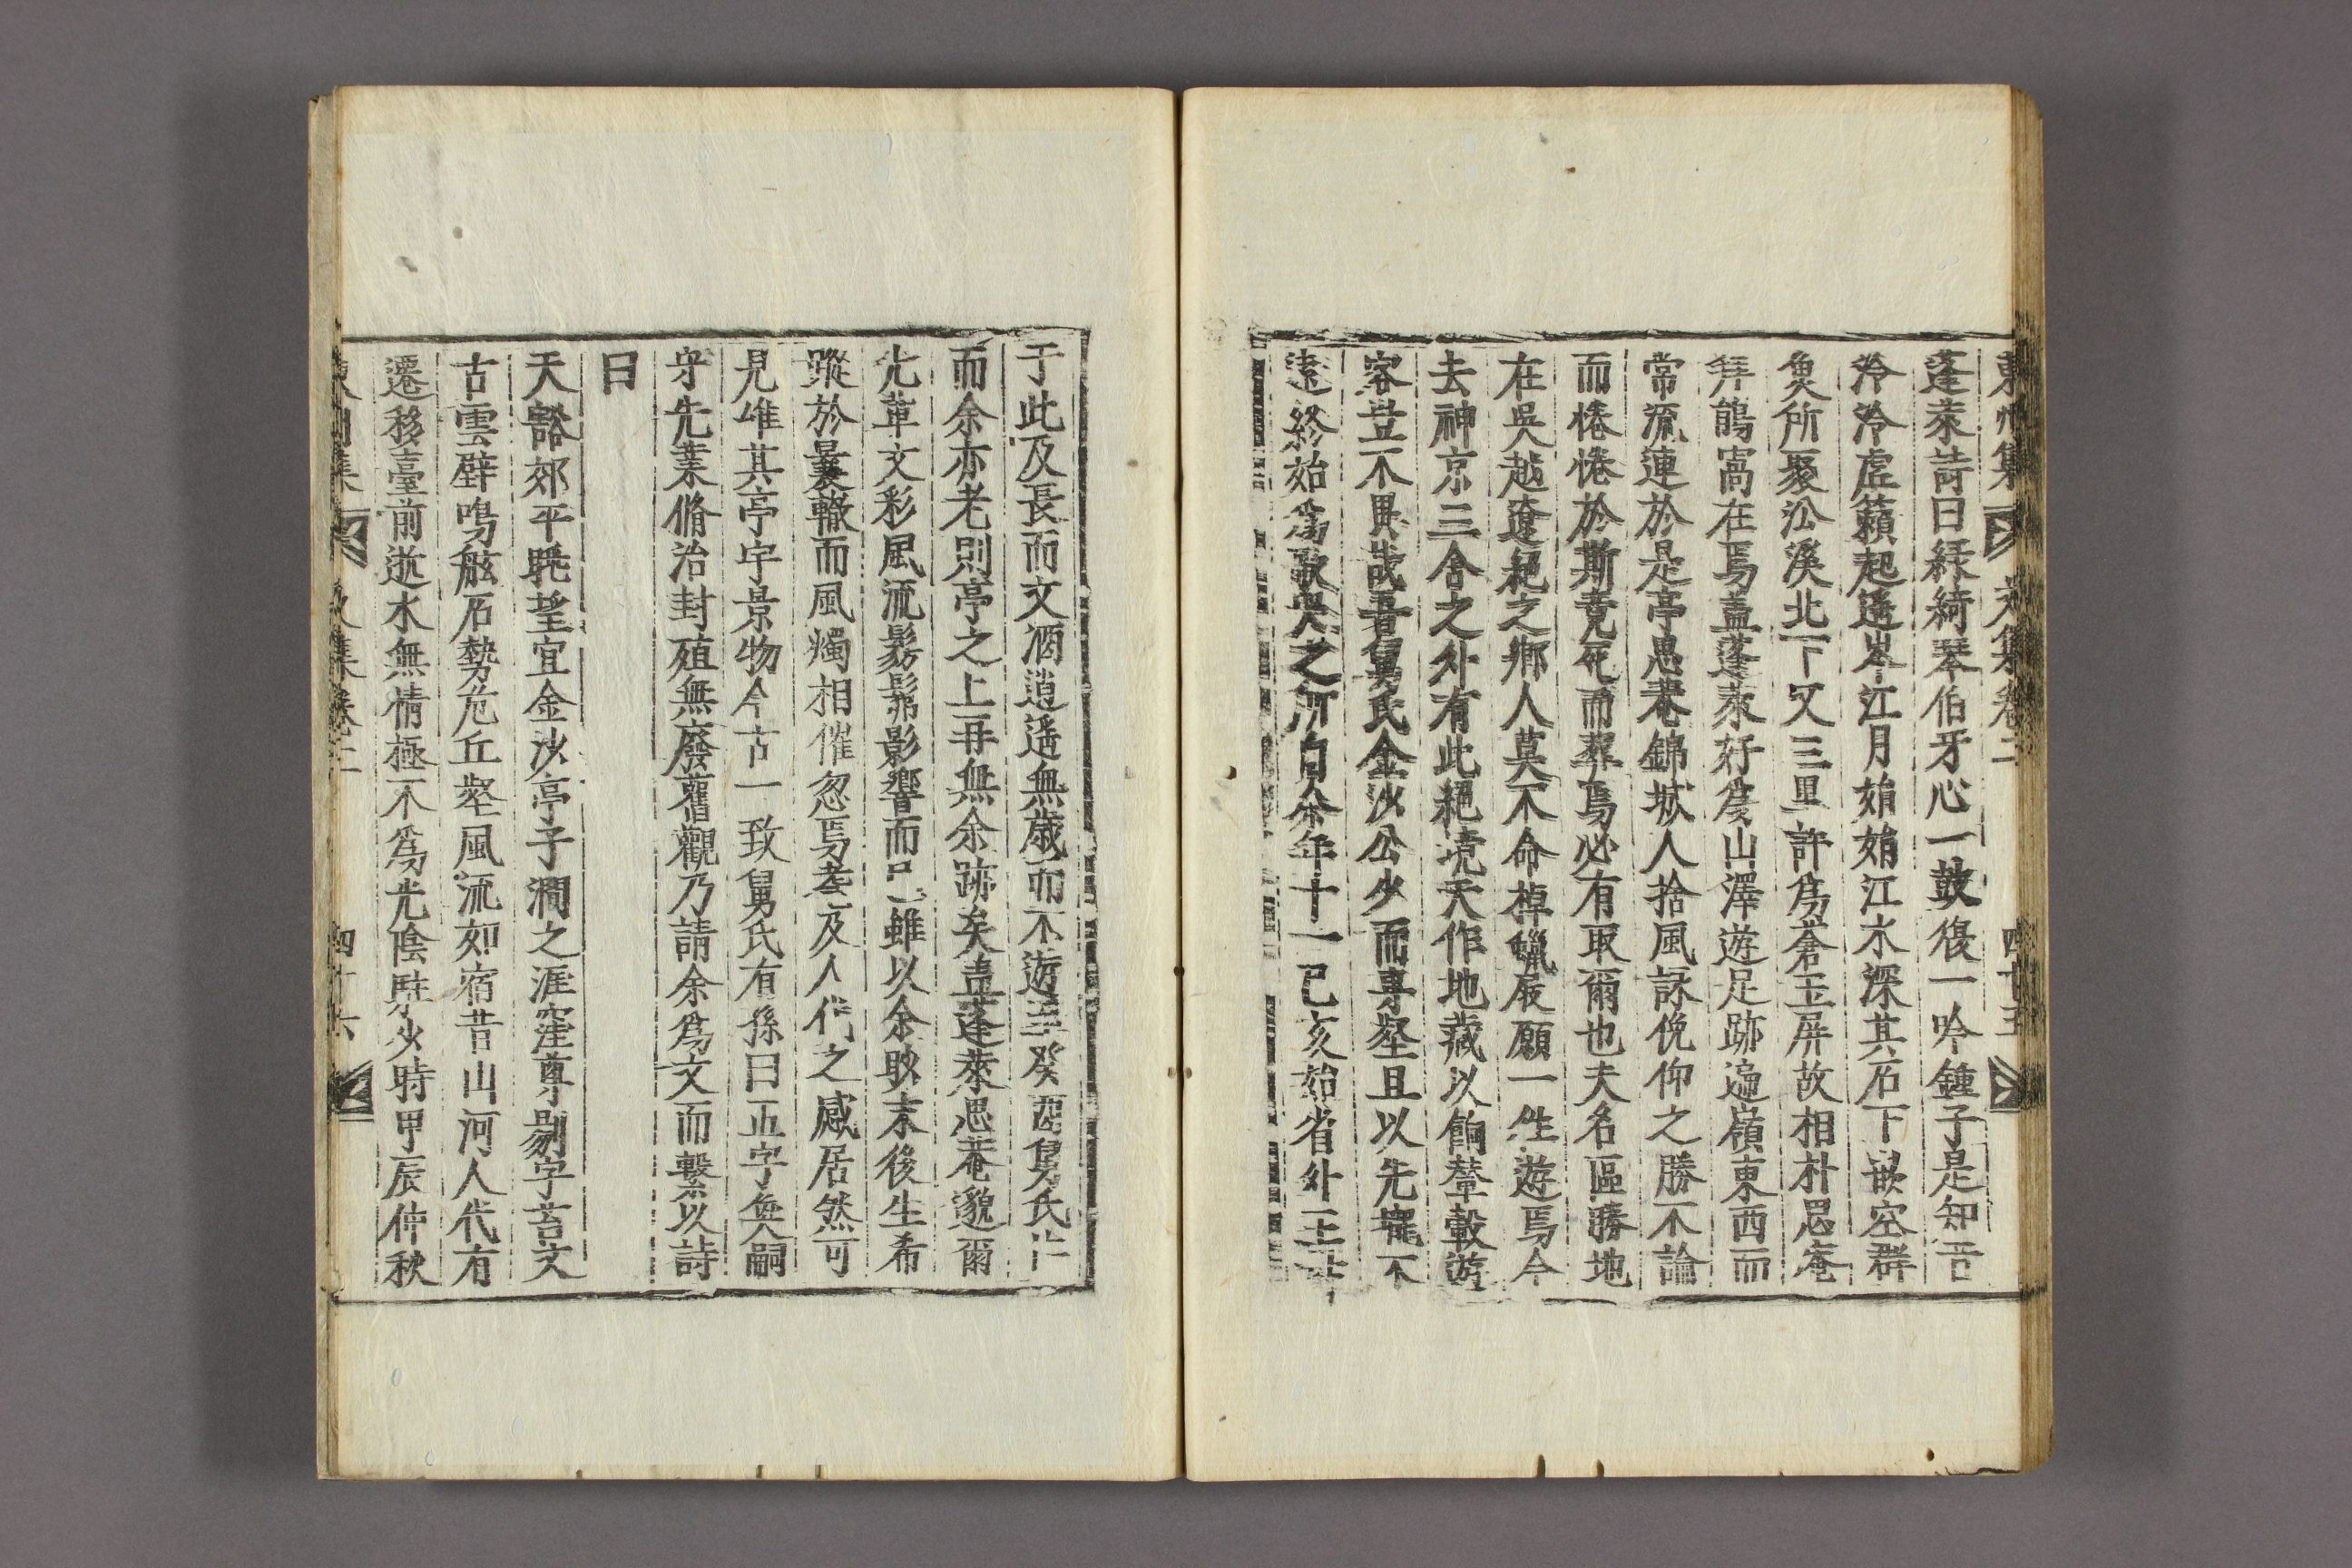 蓬萊詩曰綠綺琴伯牙心一鼓復一吟鍾子是知音
泠泠虛籟起遙岑江月娟娟江水深其石下嵌空群
魚所聚沿溪北下又三里許爲蒼玉屏故相朴思庵
拜鵑窩在焉盖蓬萊好爲山澤遊足跡遍嶺東西而
常流連於是亭思菴錦城人捨風詠俛仰之勝不論
而惓惓於斯竟死而葬焉必有取爾也夫名區勝地
在吳越遼絕之鄕人莫不命棹蠟屐願一生遊焉今
去神京三舍之外有此絕境天作地藏以餉輦轂遊
客豈不異哉吾舅氏金沙公少而專壑且以先壠不
遠終始爲歌哭之所自余年十一己亥始省外王父
于此及長而文酒逍遙無歲而不遊至癸酉舅氏亡
而余亦老則亭之上再無余跡矣盖蓬萊思菴邈爾
先輩文彩風流髣髴影響而已雖以余眇末後生希
蹤於曩轍而風燭相催忽焉耄及人代之感居然可
見唯其亭宇景物今古一致舅氏有孫曰五字奐嗣
守先業脩治封殖無廢舊觀乃請余爲文而繫以詩
曰
天豁郊平騁望宜金沙亭子澗之涯窪尊剔字苔文
古雲壁鳴舷石勢危丘壑風流如宿昔山河人代有
遷移臺前逝水無情極不爲光陰駐少時甲辰仲秋
四十六